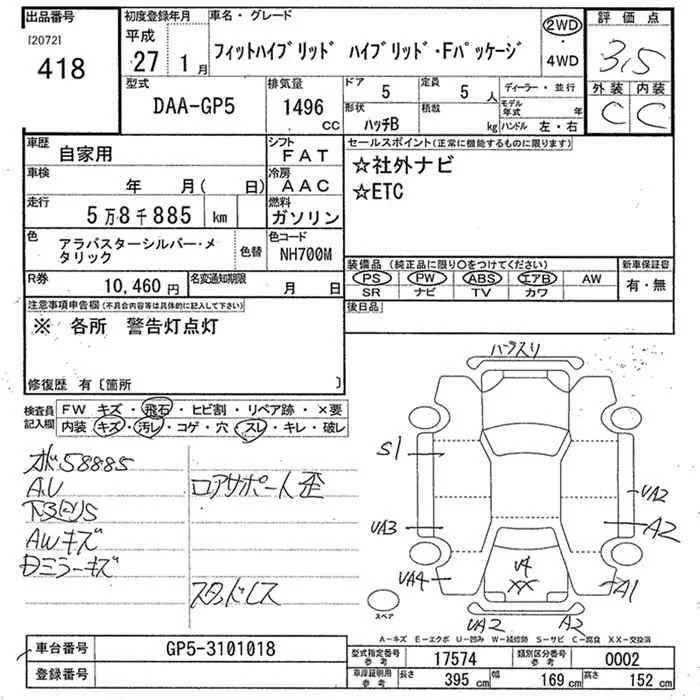 出品番号 初度登録年月 車名・グレード 評価点
[2072] 平成
418 27年 1月 フィットハイブリッド ハイブリッド・Fパッケージ 2WD・4WD 3.5
型式 排気量 ドア 定員 ディーラー・並行 外装 内装
DAA-GP5 1496 CC 5 5人 モデル年式 年 C C
形状 積載
ハッチB kg ハンドル 左・右
車歴 自家用 シフト FAT セールスポイント(正常に機能するものに限ります)
車検 年 月( 日) 冷房 AAC ☆社外ナビ
走行 5万8千885 km 燃料 ガソリン ☆ETC
色 アラバスターシルバー・メタリック 色替 色コード NH700M
装備品(純正品に限り○をつけてください) 新車保証書
R券 10,460円 名変通知期限 月 日 PS PW ABS エアB AW 有・無
SR ナビ TV カワ
注意事項申告欄(不具合内容等は具体的に記入して下さい) 後日品
※ 各所 警告灯点灯
修復歴 有〔箇所 〕
検査員記入欄 FW キズ・飛石・ヒビ割・リペア跡・×要
内装 キズ・汚レ・コゲ・穴・スレ・キレ・破レ
ハ゛ラスリ
58885
A.U ロアサポート歪
下廻りS
AWキズ
Dミラーキズ
スタッドレス
S1
UA2
UA3 A2
UA4 U4 XX A1
UA2 A2
スペア
A-キズ E-エクボ U-凹み W-補修跡 S-サビ C-腐食 XX-交換済
車台番号 GP5-3101018 型式指定番号 参考 17574 類別区分番号 参考 0002
登録番号 車庫証明用 参考 長さ 395 cm 幅 169 cm 高さ 152 cm